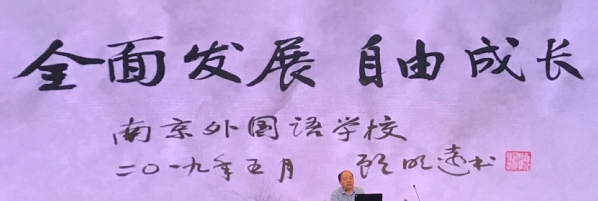 全面发展 自由成长
南京外国语学校
二〇一九年五月 顾明远书